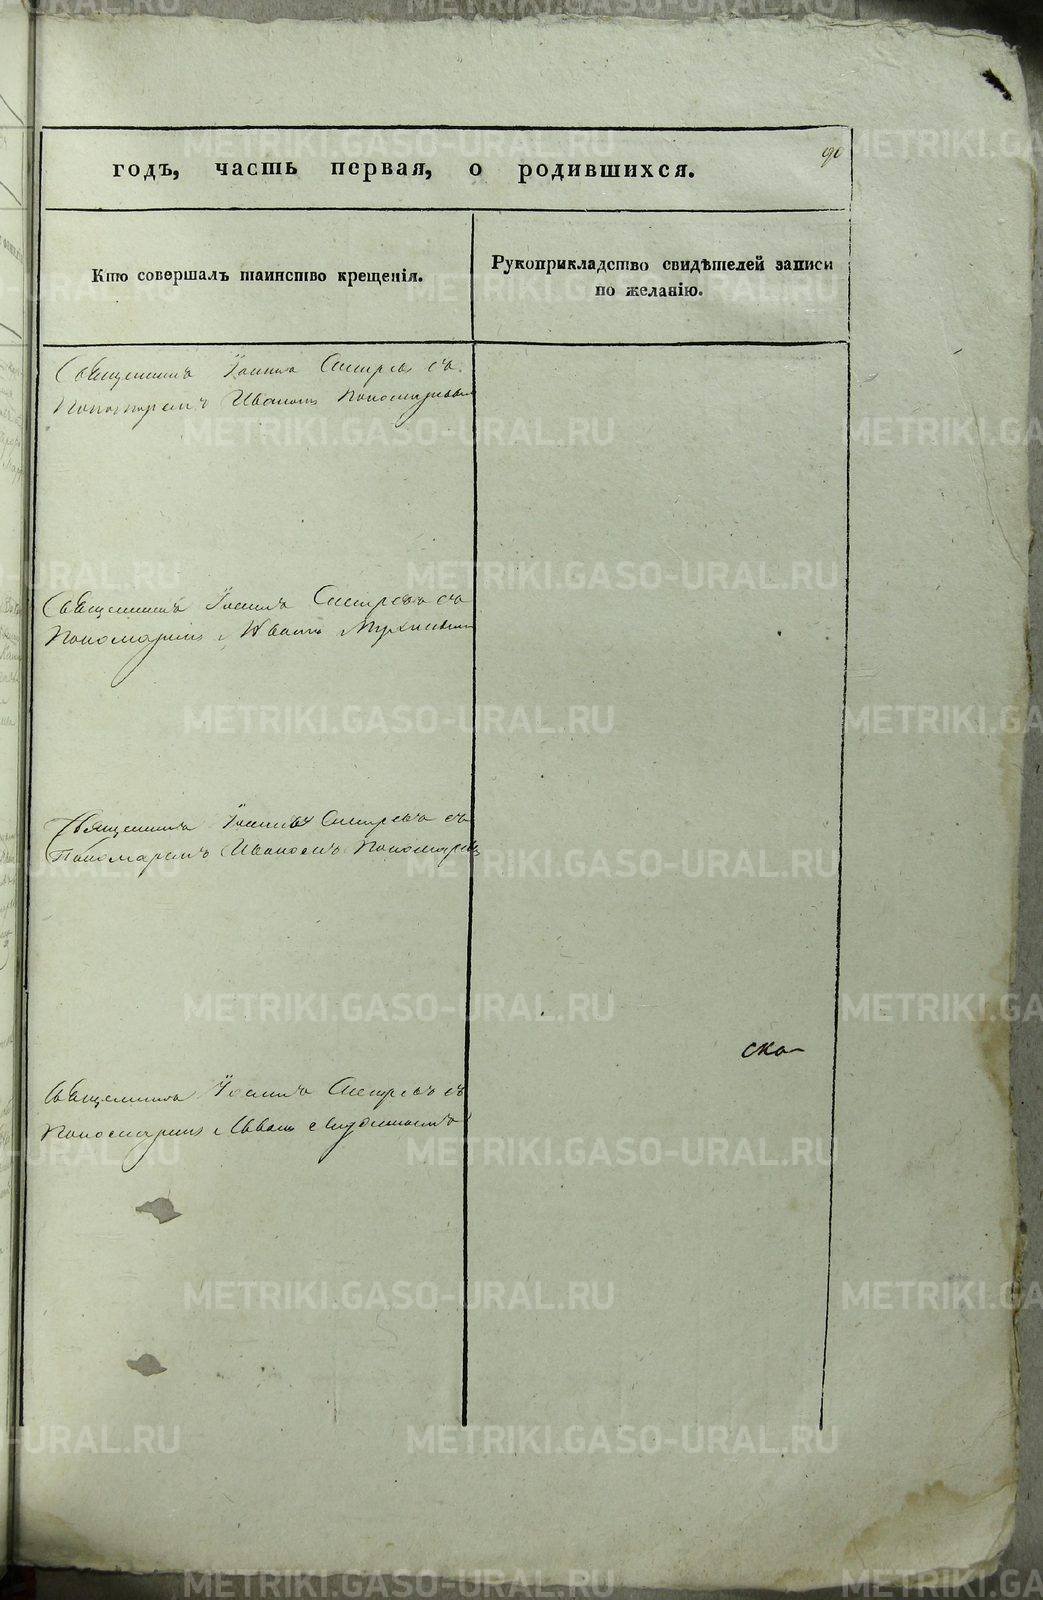 годъ, часть первая, о родившихся.
Кто совершалъ таинство крещенія.
Рукоприкладство свидѣтелей записи
по желанію.
Священникъ Іоаннъ съ
Пономаремъ Иваномъ Пономаревымъ
Священникъ Іоаннъ съ
Пономаремъ Иваномъ
Священникъ Іоаннъ съ
Пономаремъ Иваномъ Пономаревымъ
ско
Священникъ Іоаннъ съ
Пономаремъ
METRIKI.GASO-URAL.RU